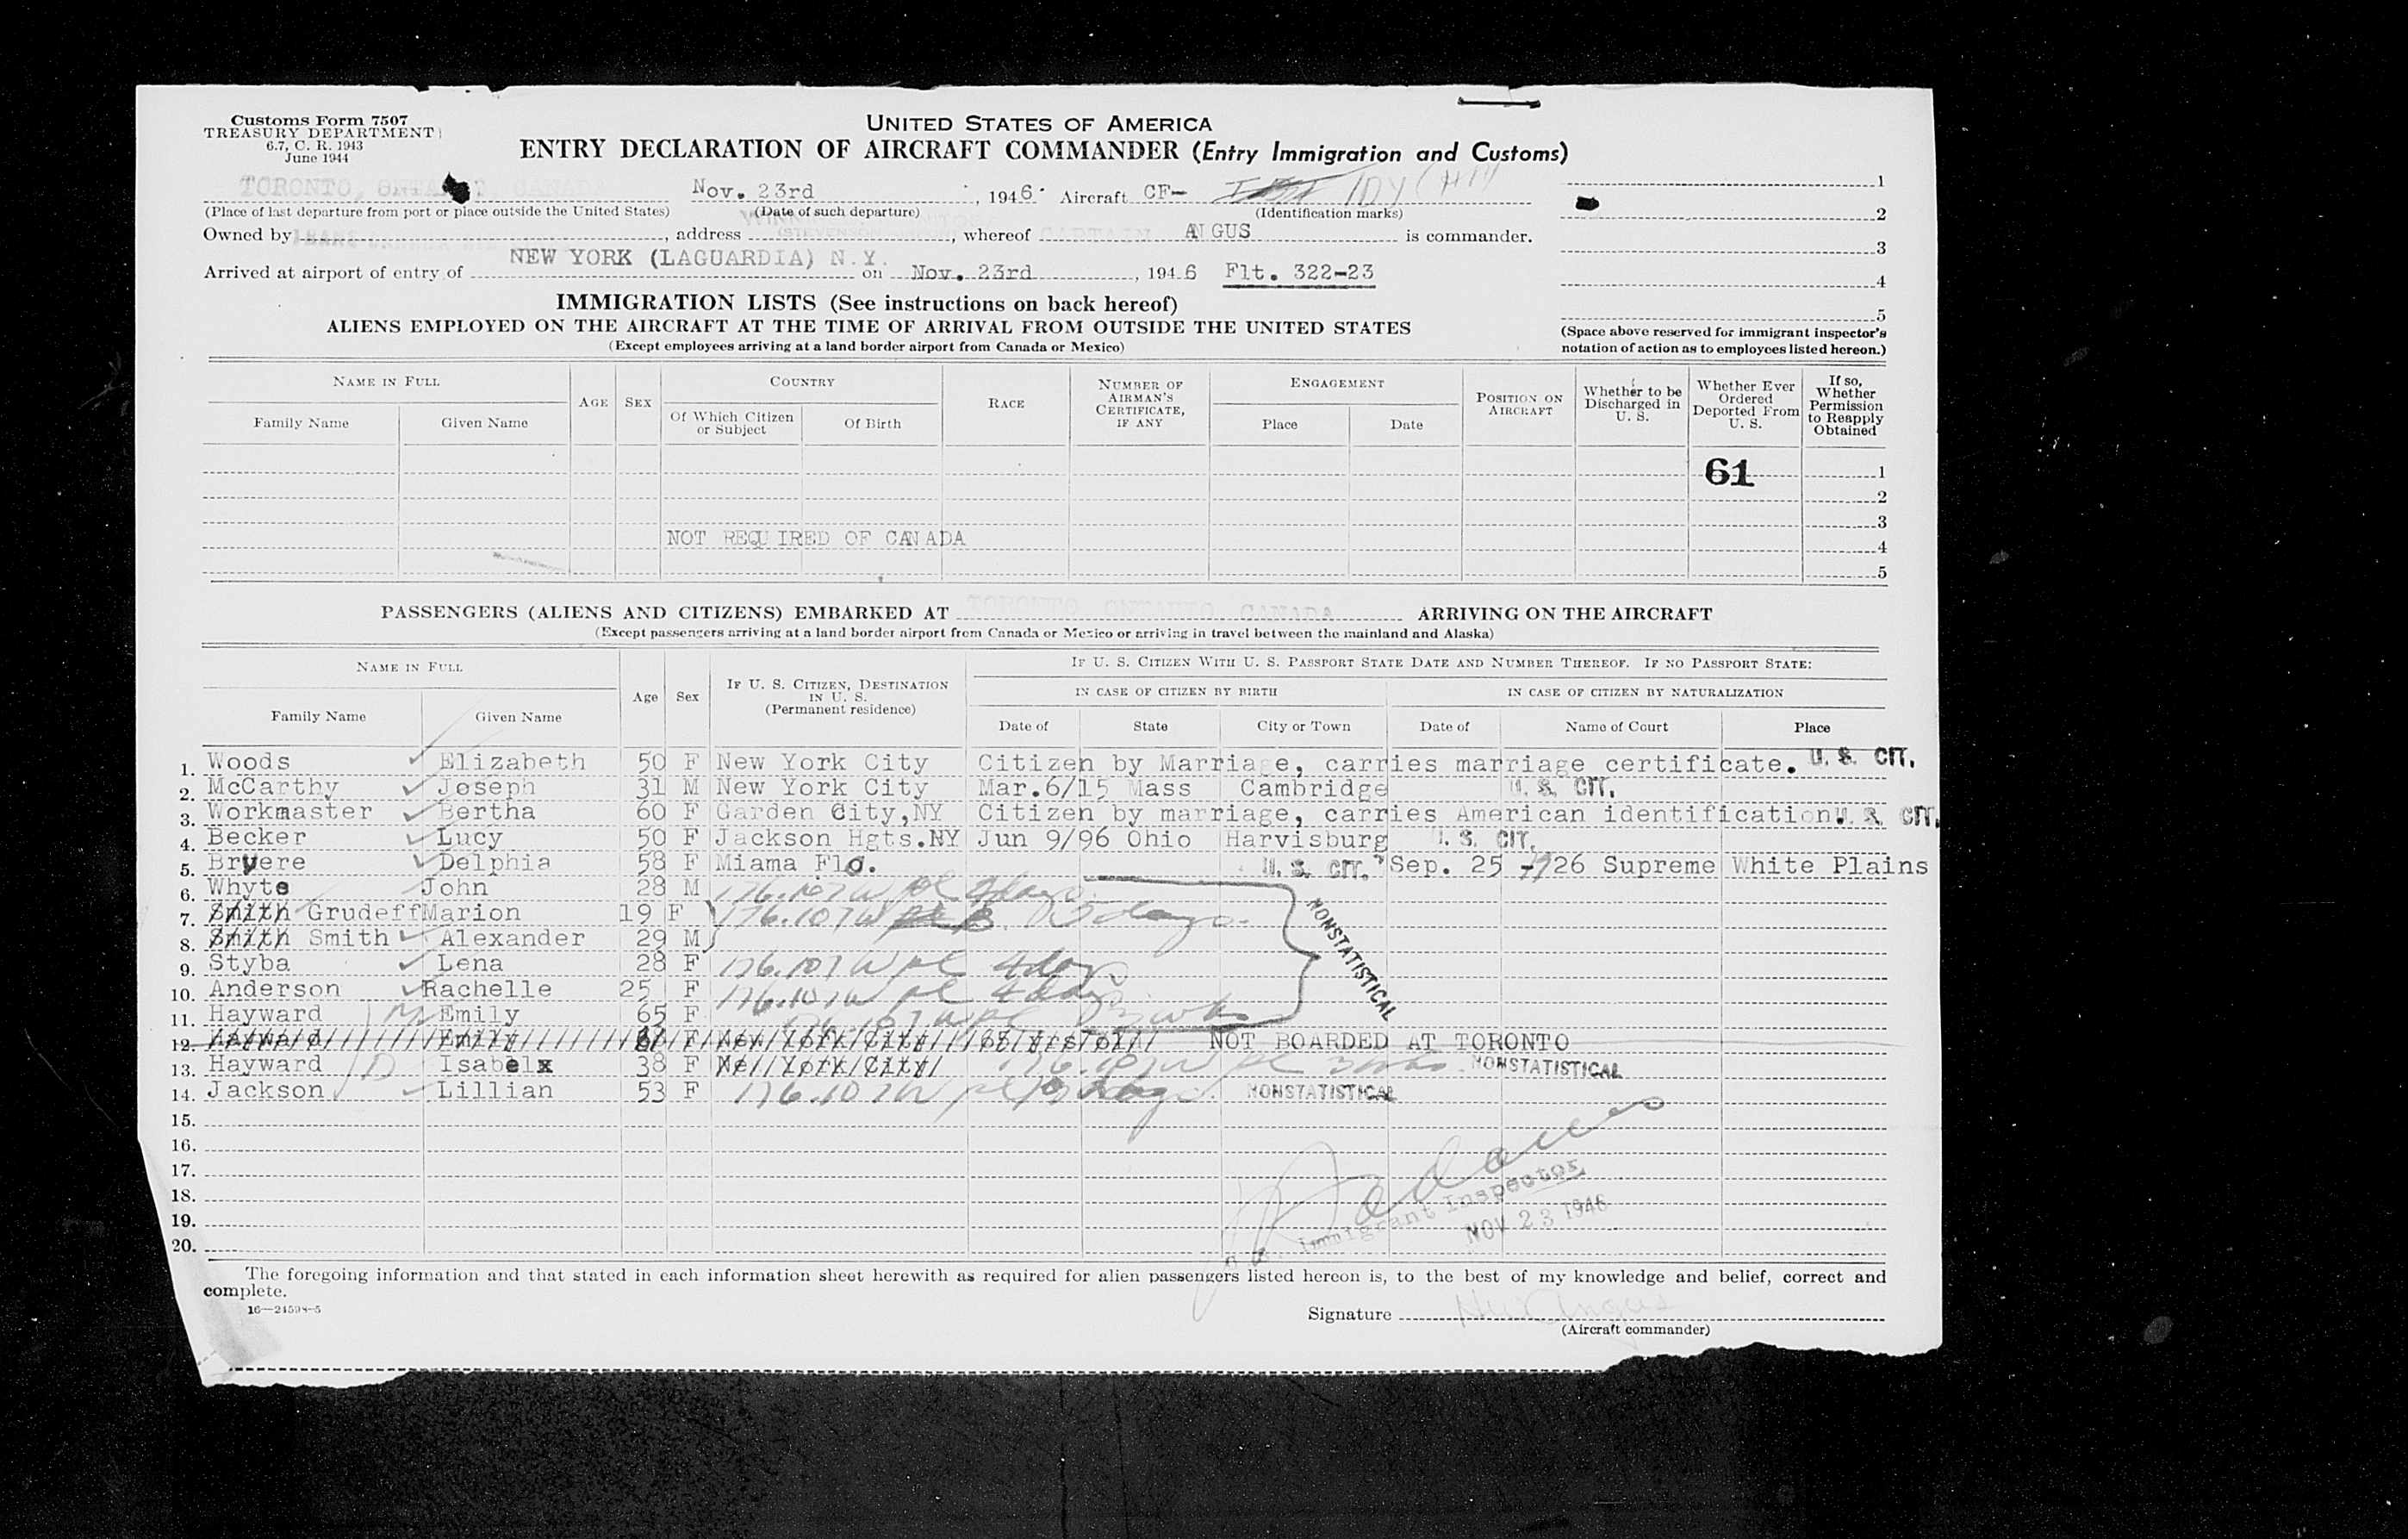 Customs Form 7507
TREASURY DEPARTMENT
6.7, C. R. 1943
June 1944
UNITED STATES OF AMERICA
ENTRY DECLARATION OF AIRCRAFT COMMANDER (Entry Immigration and Customs)
TORONTO, ONTARIO, CANADA Nov. 23rd, 1946 Aircraft CF-
(Place of last departure from port or place outside the United States) (Date of such departure) (Identification marks)
Owned by , address , whereof CAPTAIN ANGUS is commander.
Arrived at airport of entry of NEW YORK (LAGUARDIA) N.Y. on Nov. 23rd, 1946 Flt. 322-23
1
2
3
4
5
(Space above reserved for immigrant inspector's notation of action as to employees listed hereon.)
IMMIGRATION LISTS (See instructions on back hereof)
ALIENS EMPLOYED ON THE AIRCRAFT AT THE TIME OF ARRIVAL FROM OUTSIDE THE UNITED STATES
(Except employees arriving at a land border airport from Canada or Mexico)
NAME IN FULL
Family Name Given Name
AGE SEX
COUNTRY
Of Which Citizen or Subject Of Birth
RACE
NUMBER OF AIRMAN'S CERTIFICATE, IF ANY
ENGAGEMENT
Place Date
POSITION ON AIRCRAFT
Whether to be Discharged in U. S.
Whether Ever Ordered Deported From U. S.
If so, Whether Permission to Reapply Obtained
61 1
2
3
NOT REQUIRED OF CANADA 4
5
PASSENGERS (ALIENS AND CITIZENS) EMBARKED AT TORONTO ONTARIO CANADA ARRIVING ON THE AIRCRAFT
(Except passengers arriving at a land border airport from Canada or Mexico or arriving in travel between the mainland and Alaska)
NAME IN FULL
Family Name Given Name
Age Sex
IF U. S. CITIZEN, DESTINATION IN U. S. (Permanent residence)
IF U. S. CITIZEN WITH U. S. PASSPORT STATE DATE AND NUMBER THEREOF. IF NO PASSPORT STATE:
IN CASE OF CITIZEN BY BIRTH IN CASE OF CITIZEN BY NATURALIZATION
Date of State City or Town Date of Name of Court Place
1. Woods Elizabeth 50 F New York City Citizen by Marriage, carries marriage certificate. U. S. CIT.
2. McCarthy Joseph 31 M New York City Mar.6/15 Mass Cambridge U. S. CIT.
3. Workmaster Bertha 60 F Garden City,NY Citizen by marriage, carries American identification U. S. CIT.
4. Becker Lucy 50 F Jackson Hgts.NY Jun 9/96 Ohio Harvisburg U. S. CIT.
5. Bryere Delphia 58 F Miama Flo. U. S. CIT. Sep. 25 -1926 Supreme White Plains
6. Whyte John 28 M 176.107W pl 4 days
7. Smith Grudeff Marion 19 F 176.107W 5 days
8. Smith Smith Alexander 29 M
9. Styba Lena 28 F 176.107W pl 4 days
10. Anderson Rachelle 25 F 176.107W pl 4 days
11. Hayward Emily 65 F 176.107W pl 3 wks
NONSTATISTICAL
12. Hayward Emily F New York City 65 yrs old NOT BOARDED AT TORONTO
13. Hayward D Isabelx 38 F New York City 176.107W pl 3 wks NONSTATISTICAL
14. Jackson Lillian 53 F 176.107W pl days NONSTATISTICAL
15.
16.
17.
18.
19.
20.
Immigrant Inspector
NOV 23 1946
The foregoing information and that stated in each information sheet herewith as required for alien passengers listed hereon is, to the best of my knowledge and belief, correct and
complete.
16—24598-5
Signature Angus
(Aircraft commander)